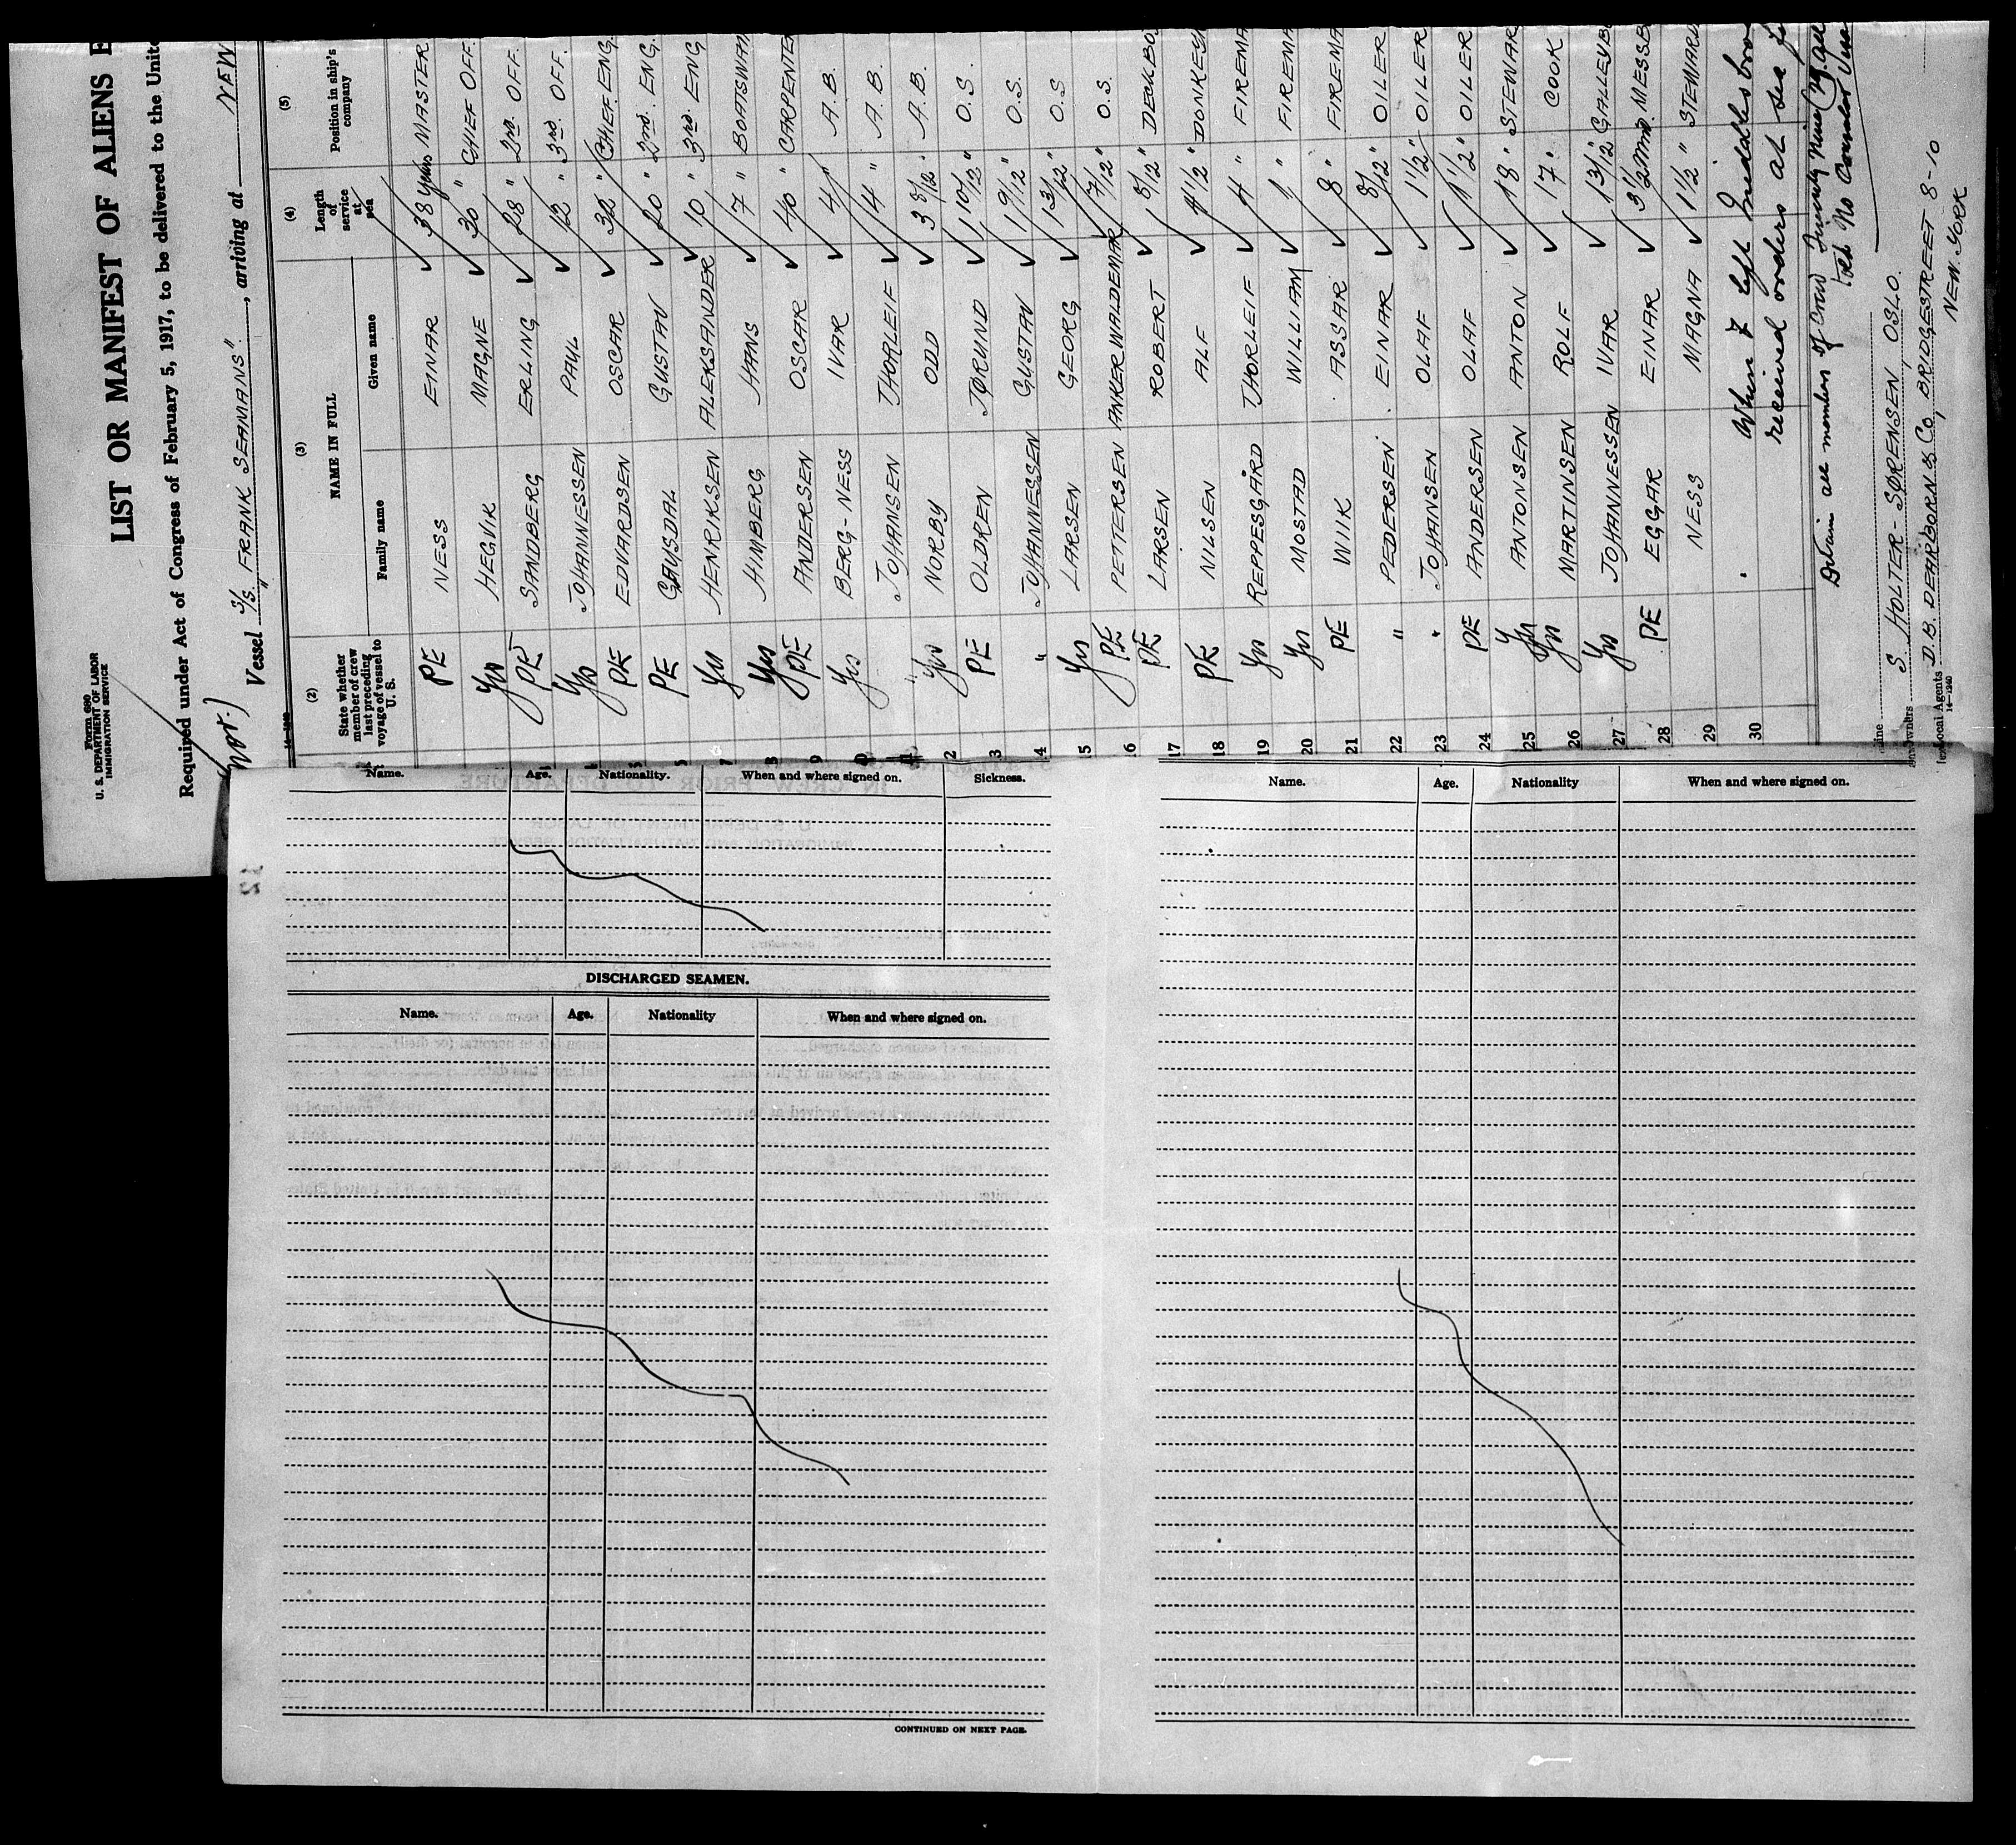 Form 680
U. S. DEPARTMENT OF LABOR
IMMIGRATION SERVICE
LIST OR MANIFEST OF ALIENS E
Required under Act of Congress of February 5, 1917, to be delivered to the Unite
(Nor.)
Vessel S/S "FRANK SEAMANS", arriving at NEW
(2) (3) (4) (5)
State whether member of crew last preceding voyage of vessel to U. S.
NAME IN FULL
Family name Given name
Length of service at sea
Position in ship's company
PE NESS EINAR 38 years MASTER
Yes HEGVIK MAGNE 30 " CHIEF OFF.
PE SANDBERG ERLING 28 " 2nd. OFF.
Yes JOHANNESSEN PAUL 12 " 3rd. OFF.
PE EDVARDSEN OSCAR 32 " CHIEF. ENG.
PE GAUSDAL GUSTAV 20 " 2nd. ENG.
Yes HENRIKSEN ALEKSANDER 10 " 3rd ENG
Yes HIMBERG HANS 7 " BOATSWAIN
PE ANDERSEN OSCAR 40 " CARPENTE
Yes BERG-NESS IVAR 4 " A.B.
" JOHANSEN THORLEIF 14 " A.B.
Yes NORBY ODD 3 5/12 " A.B.
PE OLDREN JØRUND 1 10/12 " O.S.
" 14 JOHANNESSEN GUSTAV 1 9/12 " O.S.
15 Yes LARSEN GEORG 1 3/12 " O.S
16 PE PETTERSEN ANKER WALDEMAR 7/12 " O.S.
17 PE LARSEN ROBERT 8/12 " DECKBO
18 PE NILSEN ALF 4 1/2 " DONKEYM
19 Yes REPPESGÅRD THORLEIF 4 " FIREMA
20 Yes MOSTAD WILLIAM 1 " FIREMA
21 PE WIIK ASSAR 8 " FIREMA
22 " PEDERSEN EINAR 8/12 " OILER
23 " JOHANSEN OLAF 1 1/2 " OILER
24 PE ANDERSEN OLAF 1 1/2 " OILER
25 Yes ANTONSEN ANTON 18 " STEWAR
26 Yes MARTINSEN ROLF 17 " COOK
27 Yes JOHANNESSEN IVAR 1 3/12 " GALLEYB
28 PE EGGAR EINAR 3 1/2 mnd. MESSB
29 NESS MAGNA 1 1/2 " STEWARD
30
When I left
received orders at sea
Detain all members of Crew Twenty Nine (29)
S. HOLTER-SØRENSEN OSLO.
Owners
Local Agents D.B. DEARBORN & Co, BRIDGESTREET 8-10
NEW YORK
14—1240
Name. Age. Nationality. When and where signed on. Sickness.
DISCHARGED SEAMEN.
Name. Age. Nationality When and where signed on.
CONTINUED ON NEXT PAGE.
Name. Age. Nationality When and where signed on.